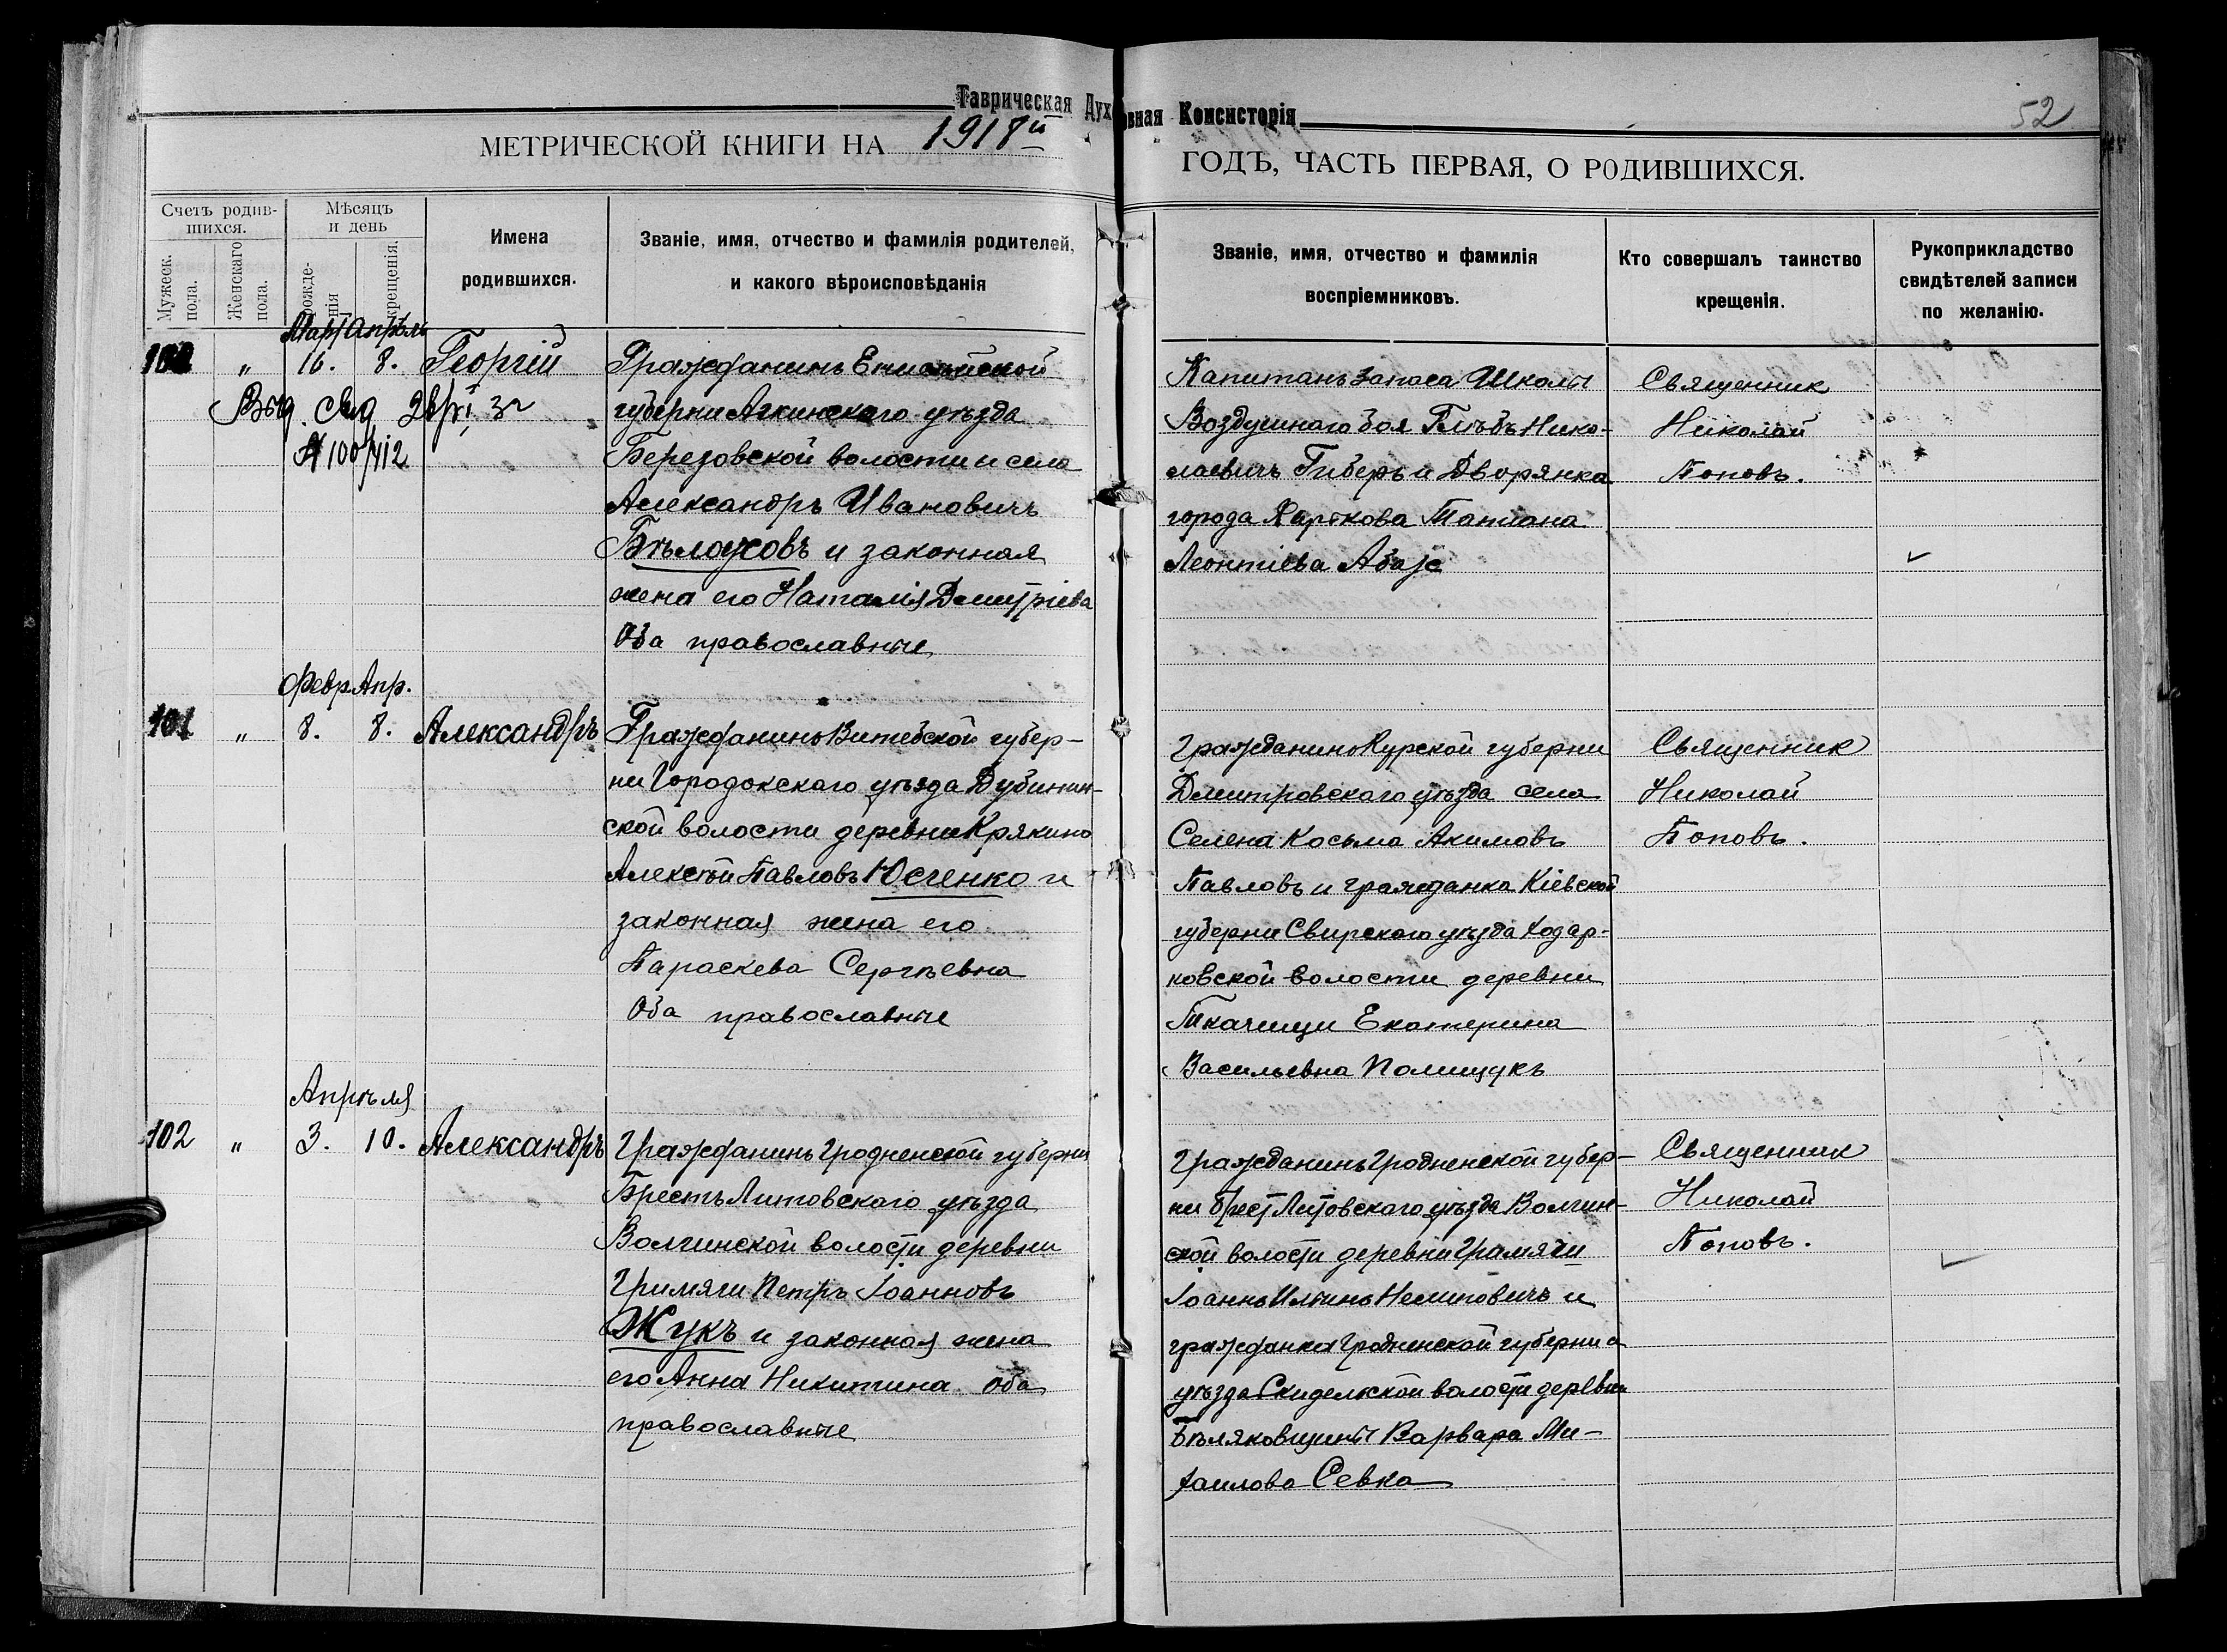 Таврическая Духовная Консисторія
52
МЕТРИЧЕСКОЙ КНИГИ НА 1918й ГОДЪ, ЧАСТЬ ПЕРВАЯ, О РОДИВШИХСЯ.
Счетъ родив-
шихся.
Мужеск.
пола.
Женскаго
пола.
Мѣсяцъ
и день
рожде-
нія
крещенія.
Имена
родившихся.
Званіе, имя, отчество и фамилія родителей,
и какого вѣроисповѣданія
Званіе, имя, отчество и фамилія
воспріемниковъ.
Кто совершалъ таинство
крещенія.
Рукоприкладство
свидѣтелей записи
по желанію.
Март Апрѣль
100 " 16. 8. Георгій
Выд. свид
№ 100/412
Гражданинъ Енисейской
губерни Ачинскаго уѣзда
Березовской волости и села
Александръ Ивановичъ
Бѣлоусовъ и законная
жена его Наталія Дмитріева
Оба православные
Капитанъ запаса Школы
Воздушнаго боя Глѣбъ Нико-
лаевичъ Гиберъ и Дворянка
города Харькова Татиана
Леонтіева Абаза
Священник
Николай
Поповъ.
Февр. Апр.
101 " 8. 8. Александръ
Гражданинъ Витебской губер-
ни Городокскаго уѣзда Дубинин-
ской волости деревни Крякино
Алексѣй Павловъ Юсченко и
законная жена его
Параскева Сергѣевна
Оба православные
Гражданинъ Курской губерни
Дмитровскаго уѣзда села
Селена Косьма Акимовъ
Павловъ и гражданка Кіевской
губерни Свирскаго уѣзда Ходар-
ковской волости деревни
Ткачищи Екатерина
Васильевна Полищукъ
Священник
Николай
Поповъ.
Апрѣля
102 " 3. 10. Александръ
Гражданинъ Гродненской губерни
Брестъ Литовскаго уѣзда
Волчинской волости деревни
Гримячи Петръ Іоанновъ
Жукъ и законная жена
его Анна Никитина оба
православные
Гражданинъ Гродненской губер-
ни Брест Литовскаго уѣзда Волчин-
ской волости деревни Грамячи
Іоаннъ Ильинъ Нелиповичъ и
гражданка Гродненской губерни и
уѣзда Скидельской волости деревни
Бѣляковщины Варвара Ми-
хаилова Севка
Священник
Николай
Поповъ.